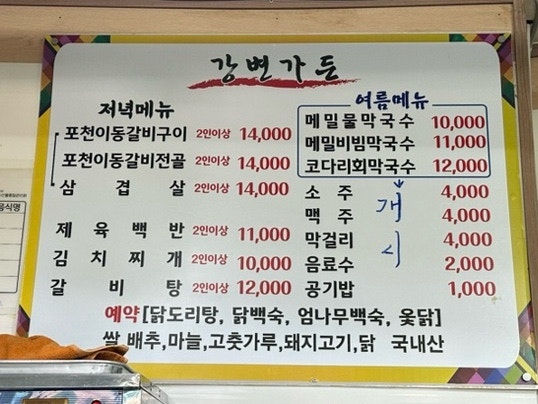 강변가든
저녁메뉴
포천이동갈비구이 2인이상 14,000
포천이동갈비전골 2인이상 14,000
삼겹살 2인이상 14,000
제육백반 2인이상 11,000
김치찌개 2인이상 10,000
갈비탕 2인이상 12,000
여름메뉴
메밀물막국수 10,000
메밀비빔막국수 11,000
코다리회막국수 12,000
개시
소주 4,000
맥주 4,000
막걸리 4,000
음료수 2,000
공기밥 1,000
예약[닭도리탕, 닭백숙, 엄나무백숙, 옻닭]
쌀 배추,마늘,고춧가루,돼지고기,닭 국내산
음식명